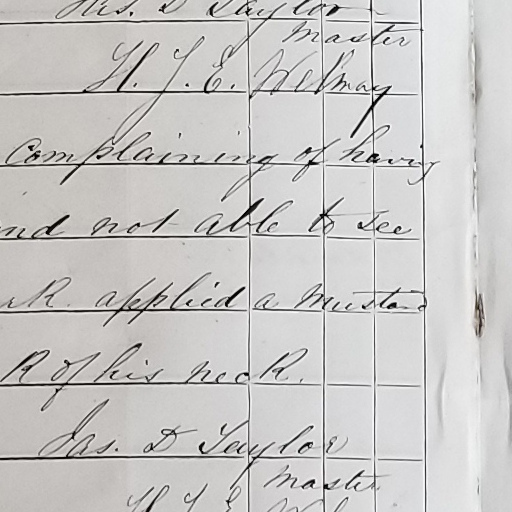 Jas. D Taylor
master
H. J. E. Welmay
complaining of having
nd not able to see
applied a mustard
k of his neck.
Jas. D Taylor
master
H. J. E.